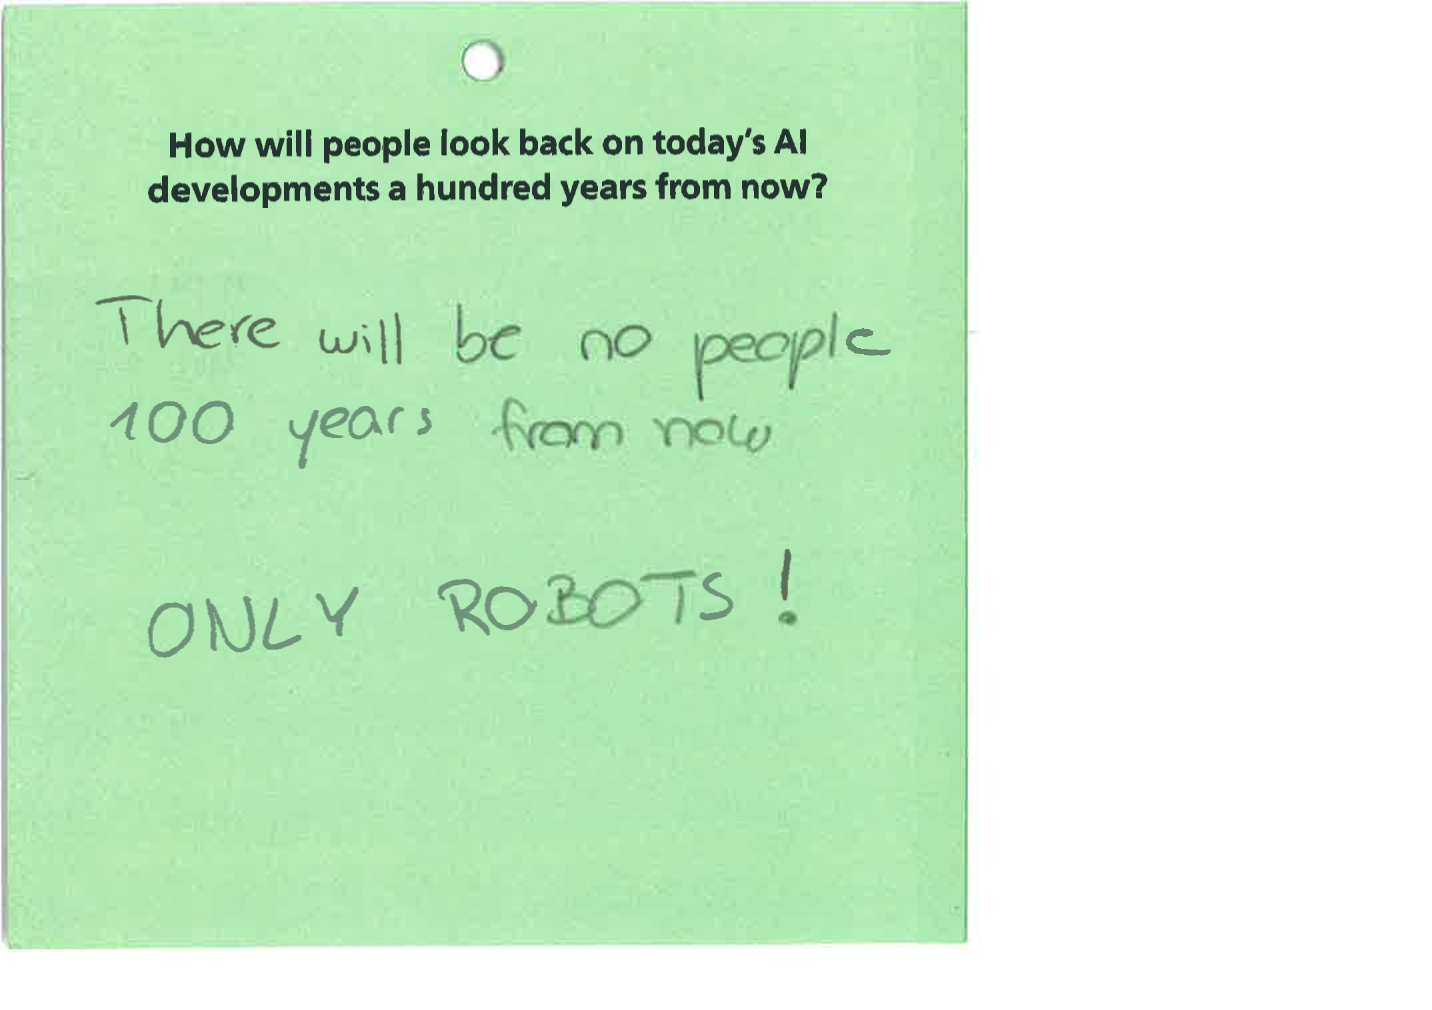 How will people look back on today's AI
developments a hundred years from now?
There will be no people
100 years from now
ONLY ROBOTS!